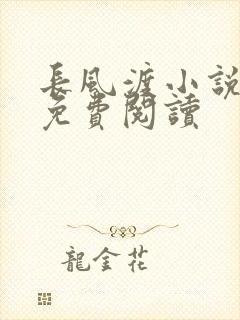 長風渡小說
免費閱讀
龍金花